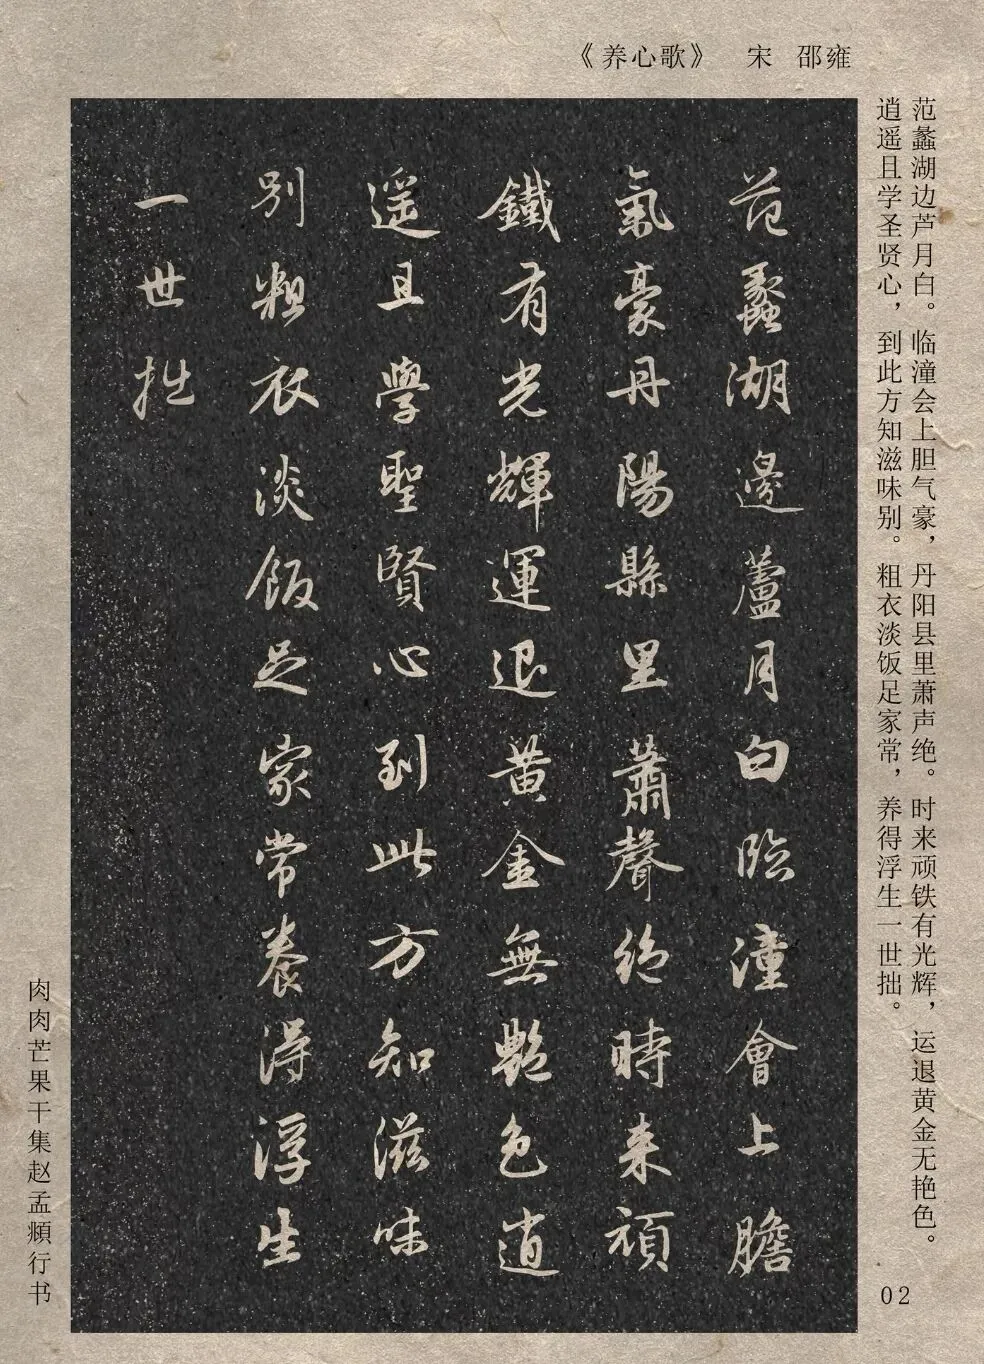 《养心歌》 宋 邵雍
范蠡湖边芦月白。临潼会上胆气豪，丹阳县里萧声绝。时来顽铁有光辉，运退黄金无艳色。
逍遥且学圣贤心，到此方知滋味别。粗衣淡饭足家常，养得浮生一世拙。
范蠡湖邊蘆月白臨潼會上膽
氣豪丹陽縣里蕭聲絕時来頑
鐵有光輝運退黄金無艶色逍
遥且學聖賢心到此方知滋味
别粗衣淡飯足家常養得浮生
一世拙
肉肉芒果干集赵孟頫行书
02